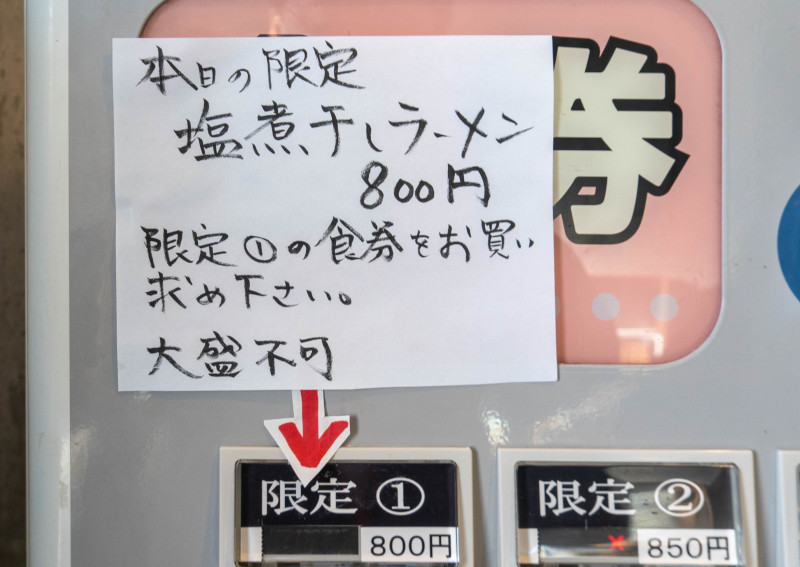 本日の限定
塩煮干しラーメン
800円
限定①の食券をお買い
求め下さい。
大盛不可
券
限定 ①
800円
限定 ②
850円